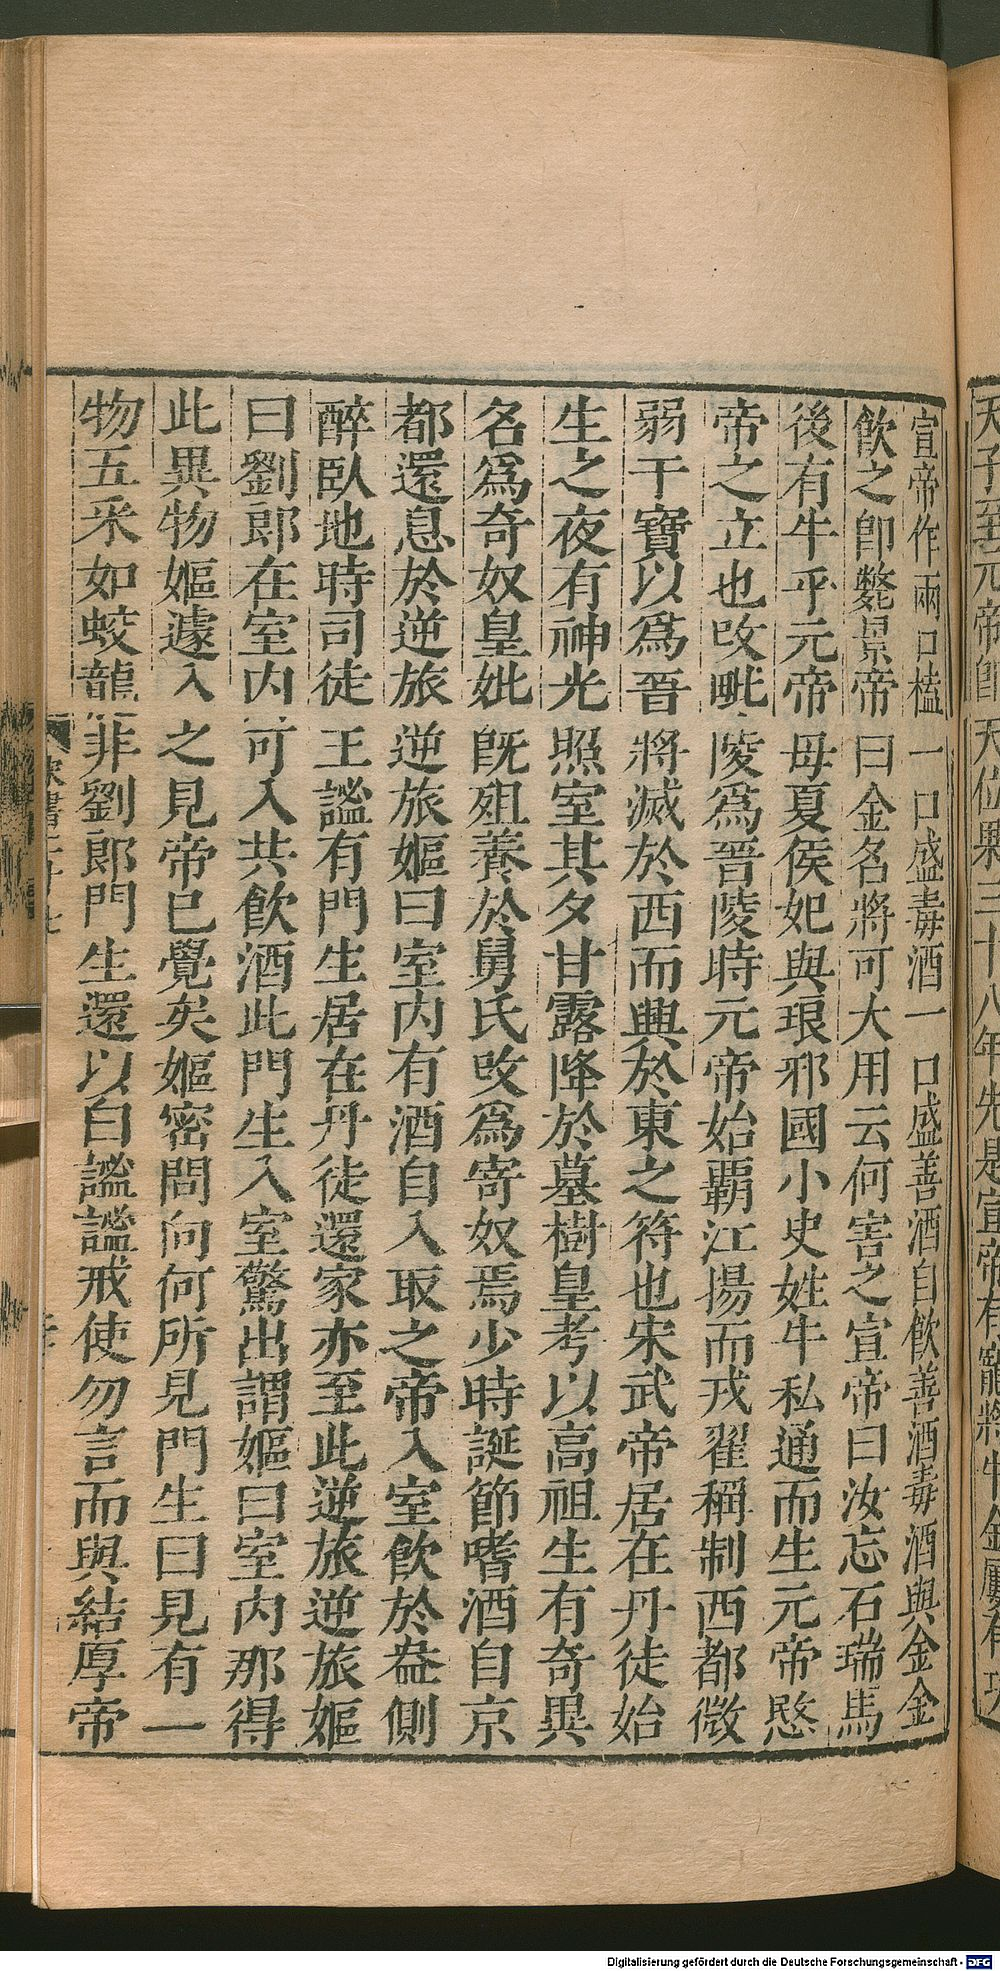 天子至元帝卽天位三十八年先是宣帝有寵將牛金屢有功
宣帝作兩口榼一口盛毒酒一口盛善酒自飲善酒毒酒與金金
飲之卽斃景帝曰金名將可大用云何害之宣帝曰汝忘石瑞馬
後有牛乎元帝母夏侯妃與琅邪國小史姓牛私通而生元帝愍
帝之立也改毗陵爲晉陵時元帝始霸江揚而戎翟稱制西都微
弱干寶以爲晉將滅於西而興於東之符也宋武帝居在丹徒始
生之夜有神光照室其夕甘露降於墓樹皇考以高祖生有奇異
名爲奇奴皇妣旣殂養於舅氏改爲寄奴焉少時誕節嗜酒自京
都還息於逆旅逆旅嫗曰室内有酒自入取之帝入室飲於盎側
醉臥地時司徒王謐有門生居在丹徒還家亦至此逆旅逆旅嫗
曰劉郎在室内可入共飲酒此門生入室驚出謂嫗曰室内那得
此異物嫗遽入之見帝已覺矣嫗密問向何所見門生曰見有一
物五采如蛟龍非劉郎門生還以白謐謐戒使勿言而與結厚帝
Digitalisierung gefördert durch die Deutsche Forschungsgemeinschaft - DFG